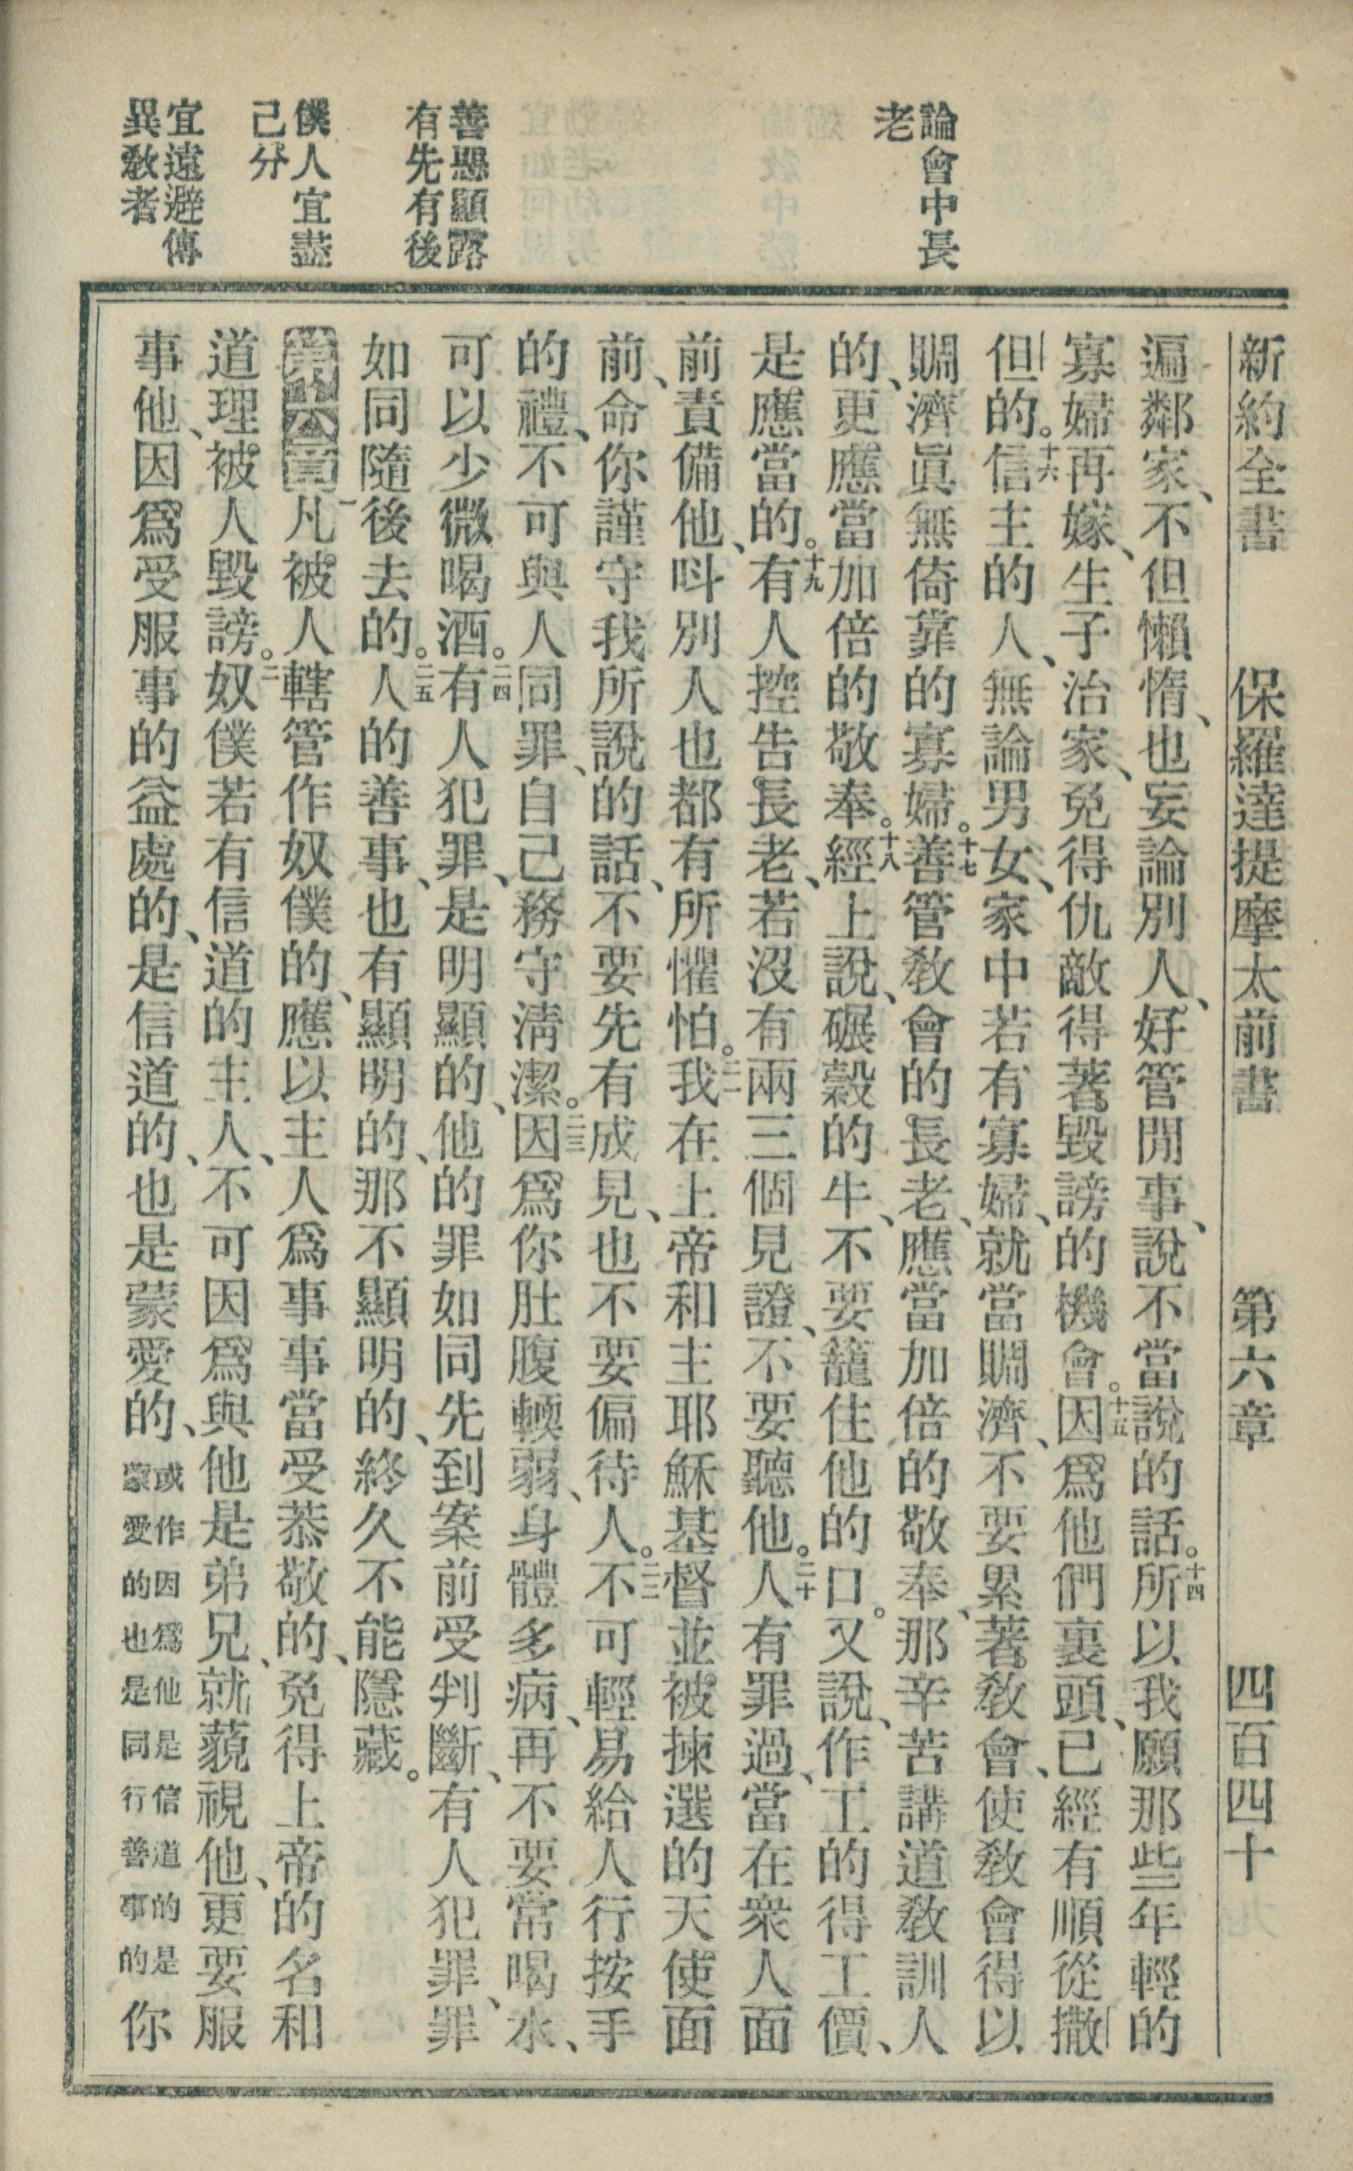 新約全書 保羅達提摩太前書 第六章 四百四十
論會中長
老
善惡顯露
有先有後
僕人宜盡
己分
宜遠避傳
異敎者
遍鄰家、不但懶惰、也妄論別人、好管閒事、說不當說的話。十四所以我願那些年輕的
寡婦再嫁、生子治家、免得仇敵得著毀謗的機會。十五因爲他們裏頭、已經有順從撒
但的。十六信主的人、無論男女、家中若有寡婦、就當賙濟、不要累著敎會、使敎會得以
賙濟眞無倚靠的寡婦。十七善管敎會的長老、應當加倍的敬奉、那辛苦講道敎訓人
的、更應當加倍的敬奉。十八經上說、碾穀的牛、不要籠住他的口。又說、作工的得工價、
是應當的。十九有人控告長老、若沒有兩三個見證、不要聽他。二十人有罪過、當在衆人面
前責備他、呌別人也都有所懼怕。二一我在上帝和主耶穌基督並被揀選的天使面
前、命你謹守我所說的話、不要先有成見、也不要偏待人。二二不可輕易給人行按手
的禮、不可與人同罪、自己務守淸潔。二三因爲你肚腹輭弱、身體多病、再不要常喝水、
可以少微喝酒。二四有人犯罪、是明顯的、他的罪如同先到案前受判斷、有人犯罪、罪
如同隨後去的。二五人的善事、也有顯明的、那不顯明的、終久不能隱藏。
第六章 一凡被人轄管作奴僕的、應以主人爲事事當受恭敬的、免得上帝的名和
道理被人毀謗。二奴僕若有信道的主人、不可因爲與他是弟兄、就藐視他、更要服
事他、因爲受服事的益處的、是信道的、也是蒙愛的、或作因爲他是信道的是蒙愛的也是同行善事的你